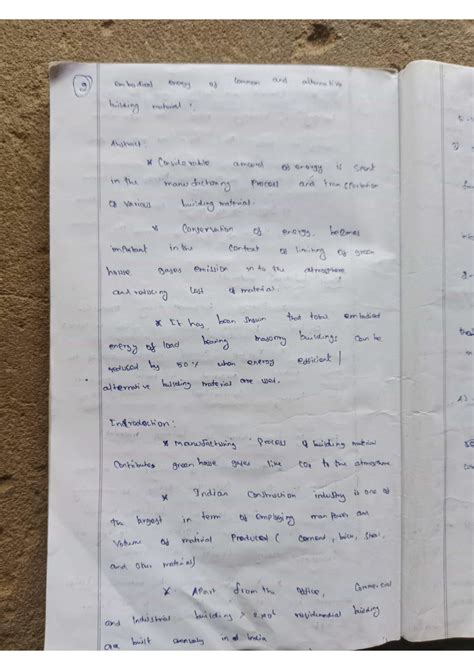 embodied energy of common and alternative
building material :
Abstract :
* Considerable amount of energy is spent
in the manufacturing process and transportation
of various building material.
* Conservation of energy becomes
important in the context of limiting of green
house gases emission in to the atmosphere
and reducing cost of material.
* It has been shown that total embodied
energy of load bearing masonry buildings can be
reduced by 50% when energy efficient /
alternative building material are used.
Introduction :
* Manufacturing process of building material
Contributes green house gases like CO2 to the atmosphere
* Indian Construction industry is one of
the largest in term of employing man power and
Volume of material Produced ( cement, brick, steel,
and other material)
* Apart from the office, Commercial
and Industrial building > 2x10⁶ residential building
are built annualy in India